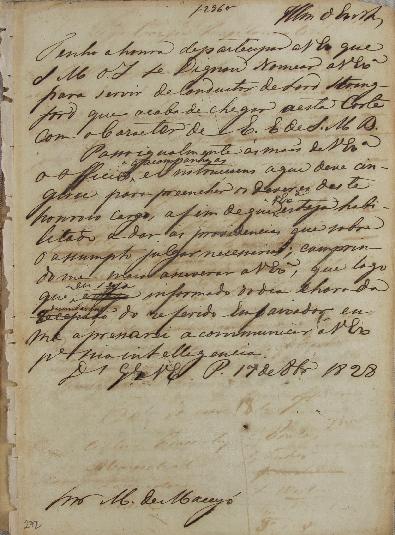 Illm e Exmo Snr
Tenho a honra de partecipar a V Exa que
S M O I se Dignou Nomear a V Exa
para servir de Conductor de Lord Strang-
ford que acaba de chegar a esta Corte
com o Caracter de E. E. de S. M. B.
Passo igualmente as maos de V Exa
o Officio, e Instrucçoens a que deve cin-
girse para preencher os deveres deste
honroso cargo, a fim de que esteja habi-
litado a dar as providencias que sobre
o assumpto julgar necessarias, cumprin-
do me mais asseverar a V Exa, que logo
que eu seja informado do dia e hora da
do referido Embaixador, eu
me apressarei a communicar a V Exa
pa sua intelligencia.
Ds Gde V Exa P. 17 de 8bro 1828
Snr M. de Maceyó
292